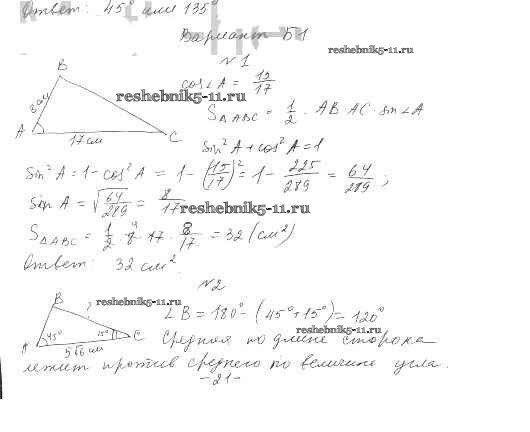 Ответ: 45° или 135°
Вариант Б1
reshebnik5-11.ru
№1
B
8 см
A
17 см
C
cos∠A = 15/17
reshebnik5-11.ru
S△ABC = 1/2 · AB · AC · sin∠A
sin²A + cos²A = 1
sin²A = 1 - cos²A = 1 - (15/17)² = 1 - 225/289 = 64/289 ;
sin A = √64/289 = 8/17
reshebnik5-11.ru
S△ABC = 1/2 · 8 · 17 · 8/17 = 32 (см²)
Ответ: 32 см².
№2
B
?
reshebnik5-11.ru
A
45°
15°
C
5√6 см
∠B = 180° - (45° + 15°) = 120°
reshebnik5-11.ru
Средняя по длине сторона
лежит против среднего по величине угла.
-21-